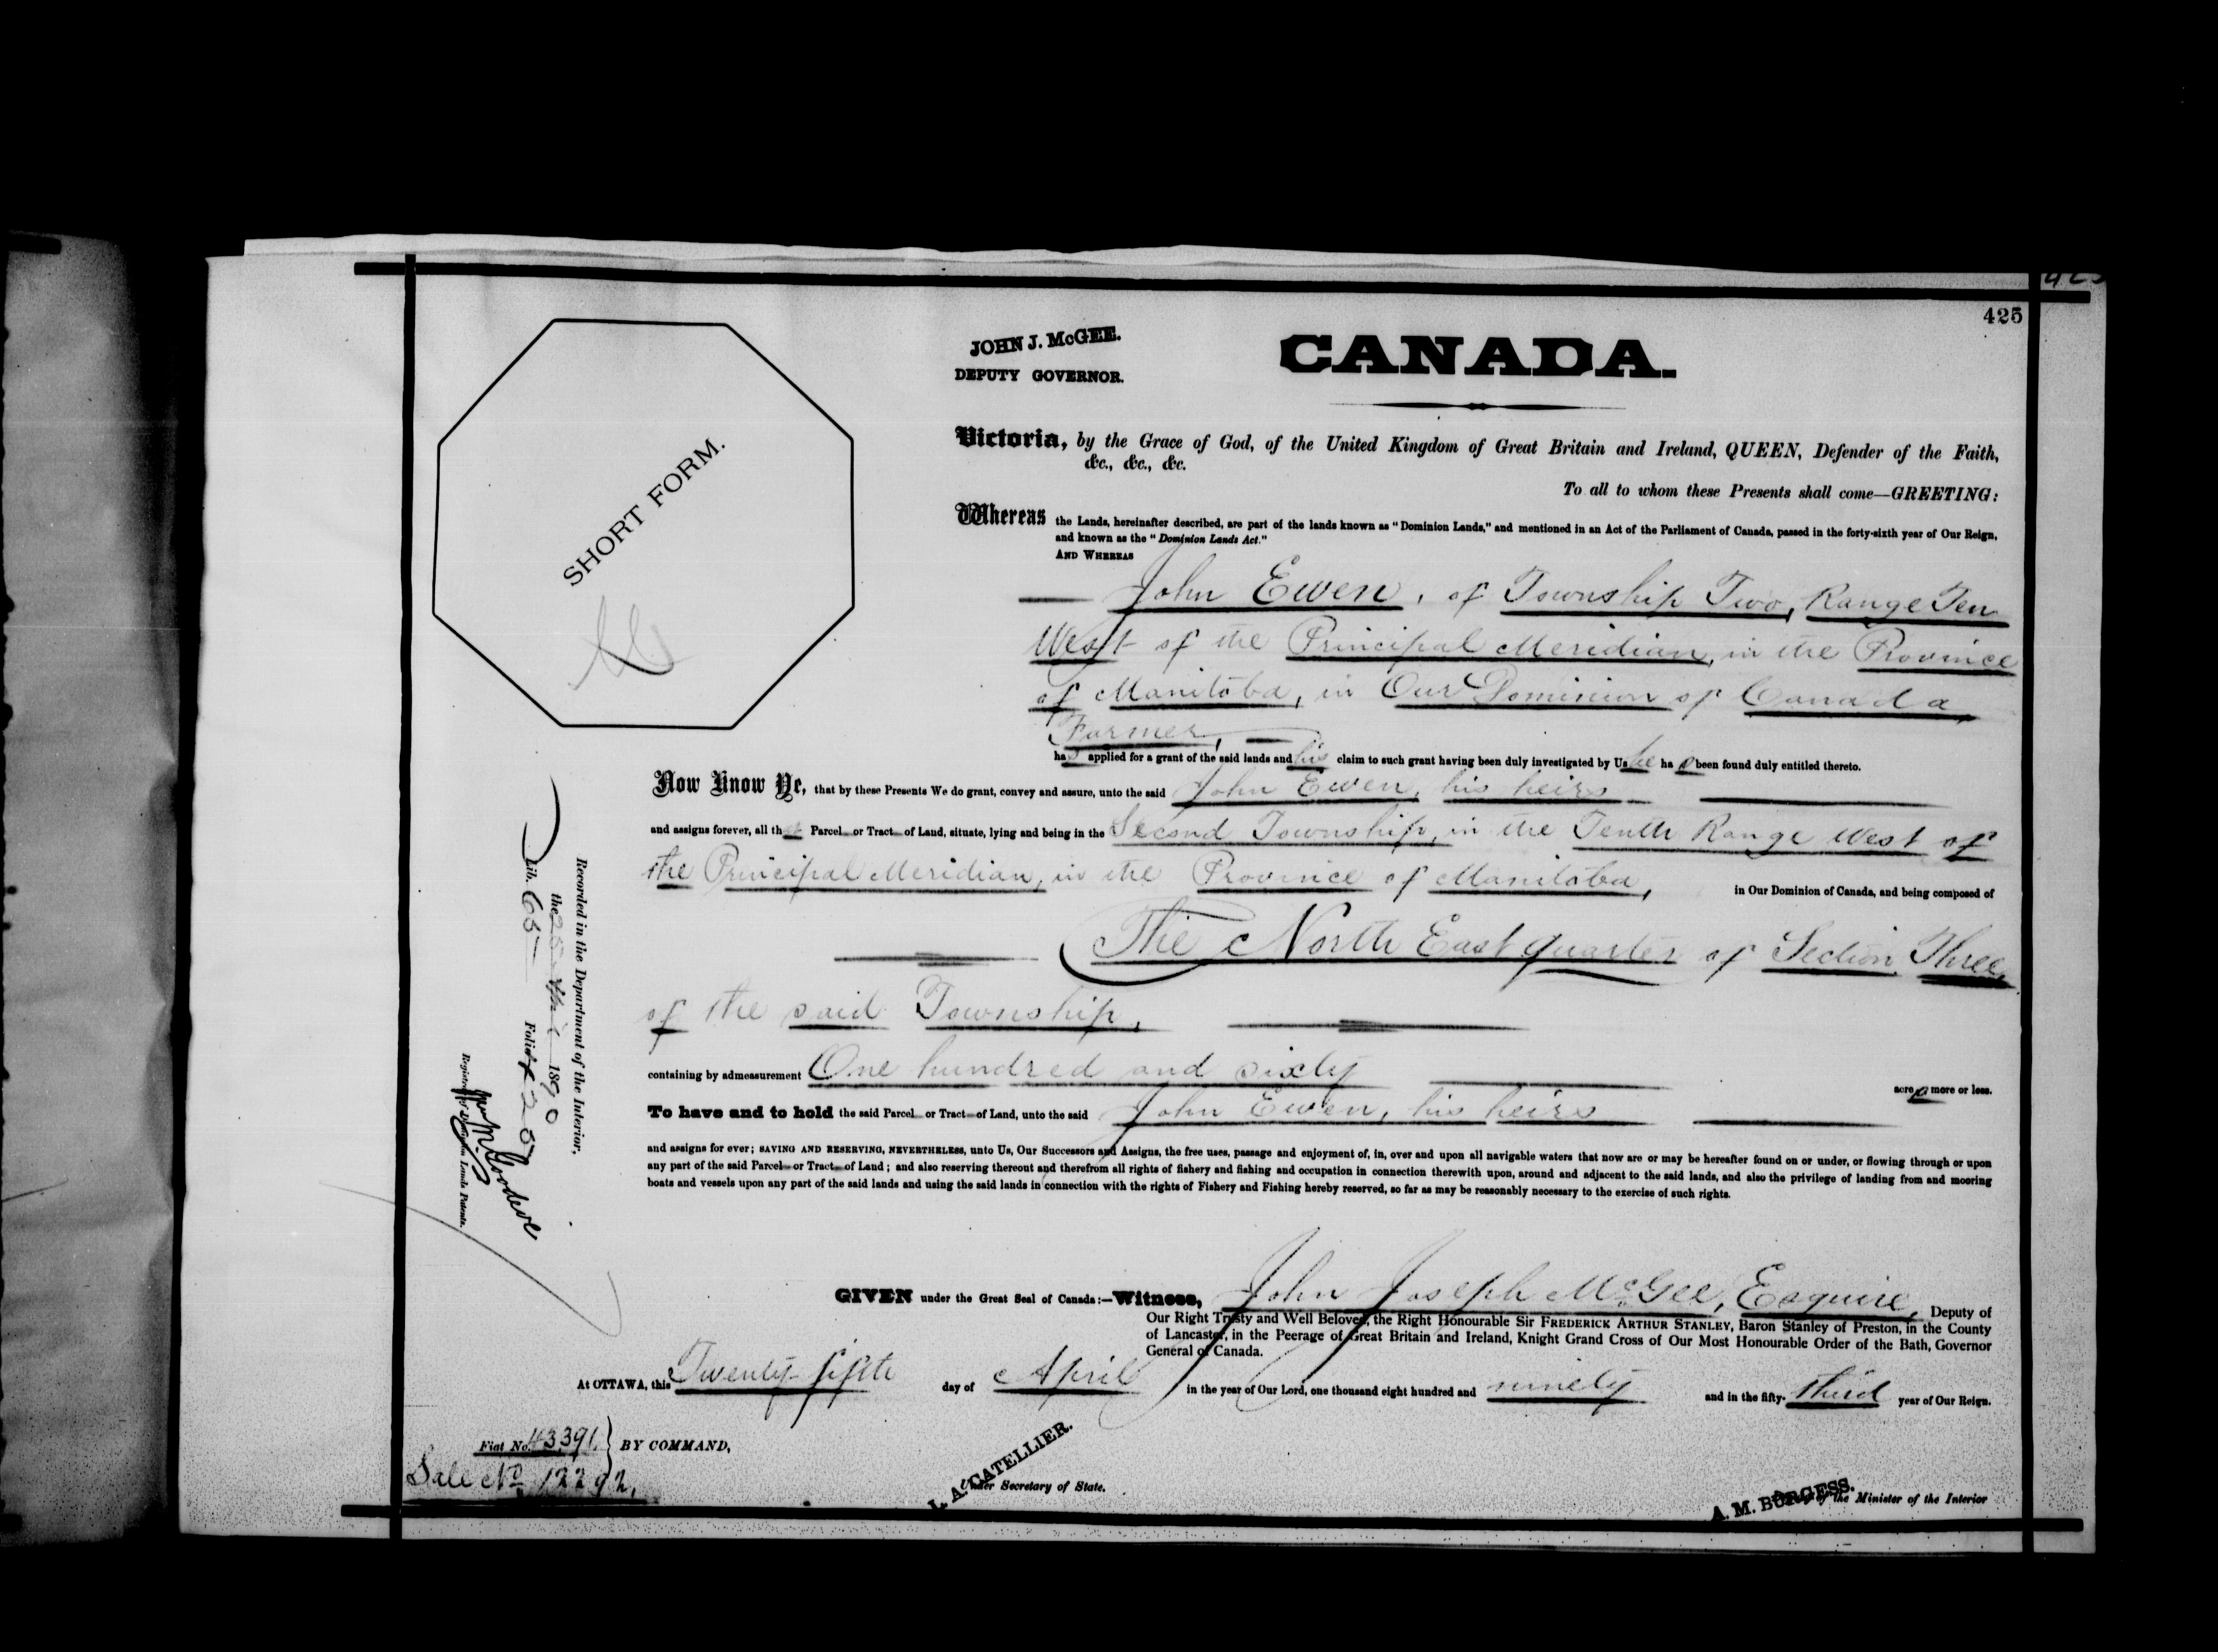 425
JOHN J. McGEE.
DEPUTY GOVERNOR.
CANADA.
SHORT FORM.
Victoria, by the Grace of God, of the United Kingdom of Great Britain and Ireland, QUEEN, Defender of the Faith,
&c., &c., &c.
To all to whom these Presents shall come—GREETING:
Whereas the Lands, hereinafter described, are part of the lands known as "Dominion Lands," and mentioned in an Act of the Parliament of Canada, passed in the forty-sixth year of Our Reign,
and known as the "Dominion Lands Act."
AND WHEREAS
John Ewen, of Township Two, Range Ten
West of the Principal Meridian, in the Province
of Manitoba, in Our Dominion of Canada,
Farmer,
has applied for a grant of the said lands and his claim to such grant having been duly investigated by Us he has been found duly entitled thereto.
Now Know Ye, that by these Presents We do grant, convey and assure, unto the said John Ewen, his heirs
and assigns forever, all that Parcel or Tract of Land, situate, lying and being in the Second Township, in the Tenth Range West of
the Principal Meridian, in the Province of Manitoba, in Our Dominion of Canada, and being composed of
The North East quarter of Section Three,
of the said Township,
containing by admeasurement One hundred and sixty acres more or less.
To have and to hold the said Parcel or Tract of Land, unto the said John Ewen, his heirs
and assigns for ever; SAVING AND RESERVING, NEVERTHELESS, unto Us, Our Successors and Assigns, the free uses, passage and enjoyment of, in, over and upon all navigable waters that now are or may be hereafter found on or under, or flowing through or upon
any part of the said Parcel or Tract of Land; and also reserving thereout and therefrom all rights of fishery and fishing and occupation in connection therewith upon, around and adjacent to the said lands, and also the privilege of landing from and mooring
boats and vessels upon any part of the said lands and using the said lands in connection with the rights of Fishery and Fishing hereby reserved, so far as may be reasonably necessary to the exercise of such rights.
Recorded in the Department of the Interior,
the 25 April 1890
Lib. 65 Folio 425
Registrar of Dominion Lands Patents.
GIVEN under the Great Seal of Canada:—Witness, John Joseph McGee, Esquire, Deputy of
Our Right Trusty and Well Beloved, the Right Honourable Sir FREDERICK ARTHUR STANLEY, Baron Stanley of Preston, in the County
of Lancaster, in the Peerage of Great Britain and Ireland, Knight Grand Cross of Our Most Honourable Order of the Bath, Governor
General of Canada.
At OTTAWA, this Twenty-fifth day of April in the year of Our Lord, one thousand eight hundred and ninety and in the fifty-third year of Our Reign.
Fiat No. 43391. BY COMMAND,
Sale No 12292.
L. A. CATELLIER.
Under Secretary of State.
A. M. BURGESS.
of the Minister of the Interior